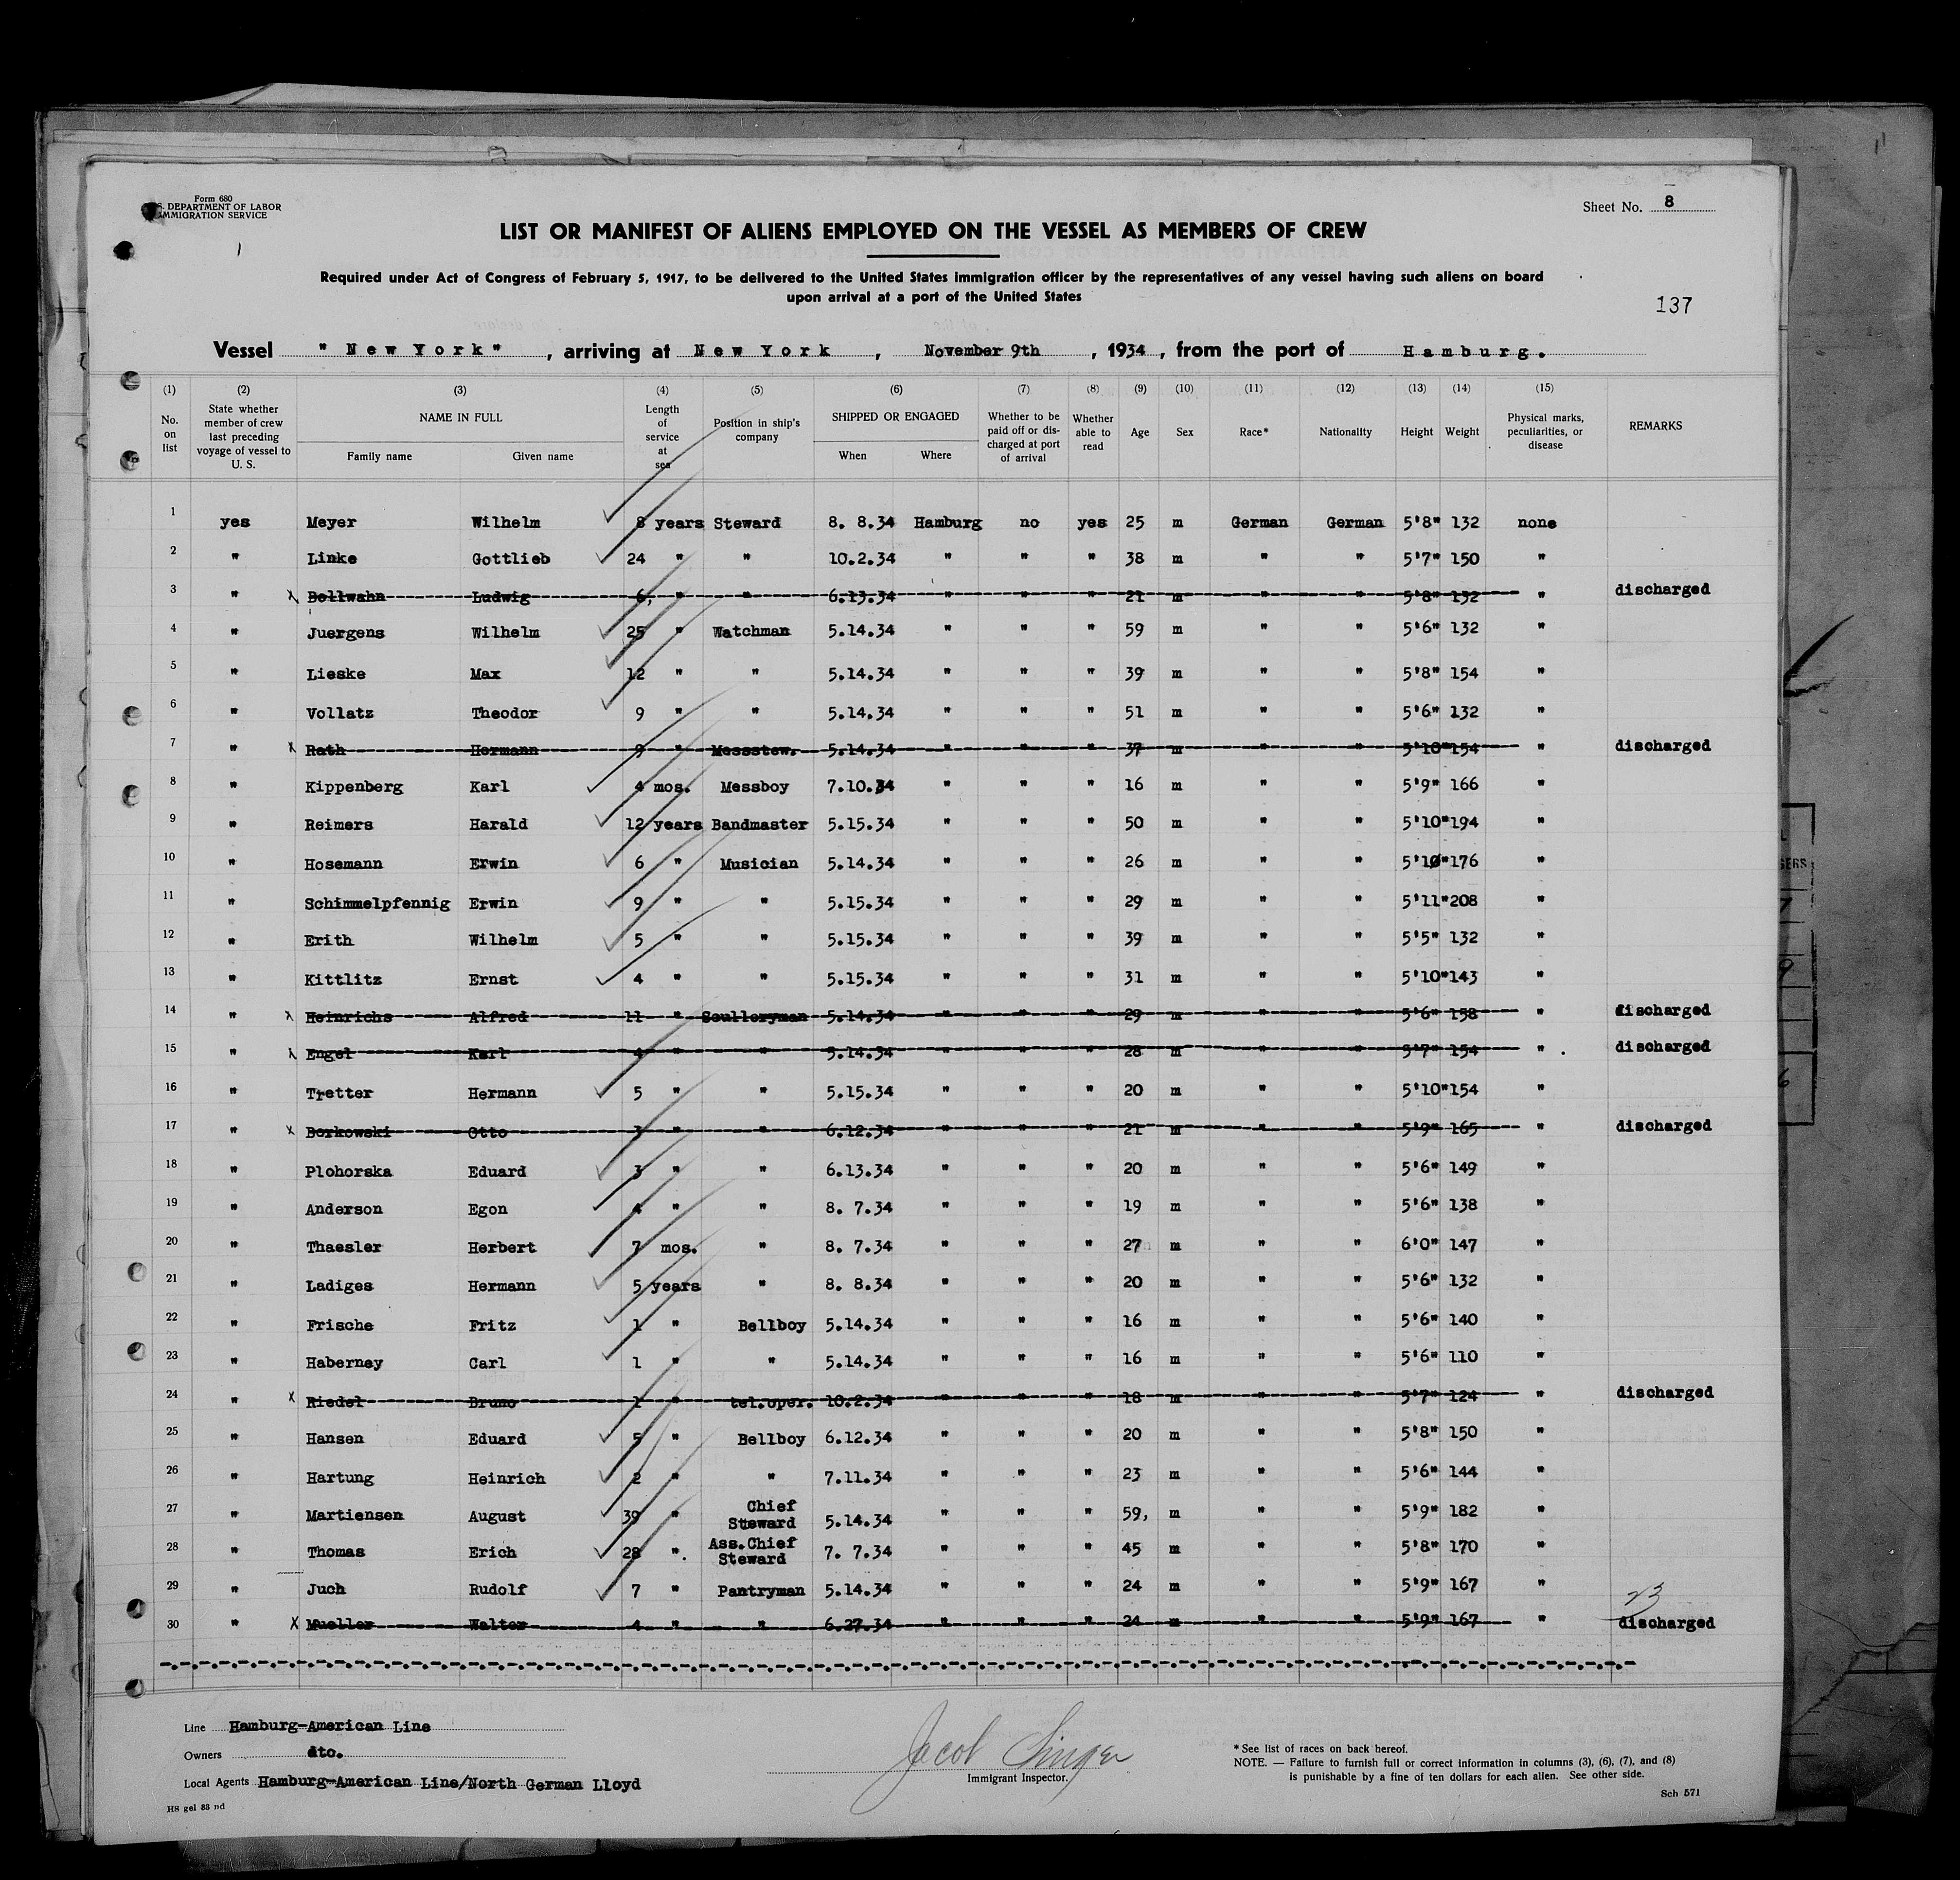 Form 680
U.S. DEPARTMENT OF LABOR
IMMIGRATION SERVICE
Sheet No. 8
LIST OR MANIFEST OF ALIENS EMPLOYED ON THE VESSEL AS MEMBERS OF CREW
Required under Act of Congress of February 5, 1917, to be delivered to the United States immigration officer by the representatives of any vessel having such aliens on board
upon arrival at a port of the United States
137
Vessel " New York" , arriving at New York , November 9th , 1934 , from the port of Hamburg.
(1) (2) (3) (4) (5) (6) (7) (8) (9) (10) (11) (12) (13) (14) (15)
No. on list State whether member of crew last preceding voyage of vessel to U. S. NAME IN FULL Family name Given name Length of service at sea Position in ship's company SHIPPED OR ENGAGED When Where Whether to be paid off or discharged at port of arrival Whether able to read Age Sex Race* Nationality Height Weight Physical marks, peculiarities, or disease REMARKS
1 yes Meyer Wilhelm 8 years Steward 8. 8.34 Hamburg no yes 25 m German German 5'8" 132 none
2 " Linke Gottlieb 24 " " 10.2.34 " " " 38 m " " 5'7" 150 "
3 " x Bollwahn Ludwig 6, " " 6.13.34 " " " 21 m " " 5'8" 132 " discharged
4 " Juergens Wilhelm 25 " Watchman 5.14.34 " " " 59 m " " 5'6" 132 "
5 " Lieske Max 12 " " 5.14.34 " " " 39 m " " 5'8" 154 "
6 " Vollatz Theodor 9 " " 5.14.34 " " " 51 m " " 5'6" 132 "
7 " x Rath Hermann 9 " Messstew. 5.14.34 " " " 37 m " " 5'10" 154 " discharged
8 " Kippenberg Karl 4 mos. Messboy 7.10.34 " " " 16 m " " 5'9" 166 "
9 " Reimers Harald 12 years Bandmaster 5.15.34 " " " 50 m " " 5'10" 194 "
10 " Hosemann Erwin 6 " Musician 5.14.34 " " " 26 m " " 5'10" 176 "
11 " Schimmelpfennig Erwin 9 " " 5.15.34 " " " 29 m " " 5'11" 208 "
12 " Erith Wilhelm 5 " " 5.15.34 " " " 39 m " " 5'5" 132 "
13 " Kittlitz Ernst 4 " " 5.15.34 " " " 31 m " " 5'10" 143 "
14 " x Heinrichs Alfred 11 " Sculleryman 5.14.34 " " " 29 m " " 5'6" 158 " discharged
15 " x Engel Karl 4 " " 5.14.34 " " " 28 m " " 5'7" 154 " . discharged
16 " Tretter Hermann 5 " " 5.15.34 " " " 20 m " " 5'10" 154 "
17 " x Borkowski Otto 3 " " 6.12.34 " " " 21 m " " 5'9" 165 " discharged
18 " Plohorska Eduard 3 " " 6.13.34 " " " 20 m " " 5'6" 149 "
19 " Anderson Egon 4 " " 8. 7.34 " " " 19 m " " 5'6" 138 "
20 " Thaesler Herbert 7 mos. " 8. 7.34 " " " 27 m " " 6'0" 147 "
21 " Ladiges Hermann 5 years " 8. 8.34 " " " 20 m " " 5'6" 132 "
22 " Frische Fritz 1 " Bellboy 5.14.34 " " " 16 m " " 5'6" 140 "
23 " Haberney Carl 1 " " 5.14.34 " " " 16 m " " 5'6" 110 "
24 " x Riedel Bruno 1 " tel.oper. 10.2.34 " " " 18 m " " 5'7" 124 " discharged
25 " Hansen Eduard 5 " Bellboy 6.12.34 " " " 20 m " " 5'8" 150 "
26 " Hartung Heinrich 2 " " 7.11.34 " " " 23 m " " 5'6" 144 "
27 " Martiensen August 39 " Chief Steward 5.14.34 " " " 59, m " " 5'9" 182 "
28 " Thomas Erich 28 ". Ass.Chief Steward 7. 7.34 " " " 45 m " " 5'8" 170 "
29 " Juch Rudolf 7 " Pantryman 5.14.34 " " " 24 m " " 5'9" 167 "
23
30 " X Mueller Walter 4 " " 6.27.34 " " " 24 m " " 5'9" 167 " discharged
Line Hamburg-American Line
Owners dto.
Local Agents Hamburg-American Line/North German Lloyd
H8 gel 88 nd
Jacob Singer
Immigrant Inspector.
*See list of races on back hereof.
NOTE. — Failure to furnish full or correct information in columns (3), (6), (7), and (8)
is punishable by a fine of ten dollars for each alien. See other side.
Sch 571